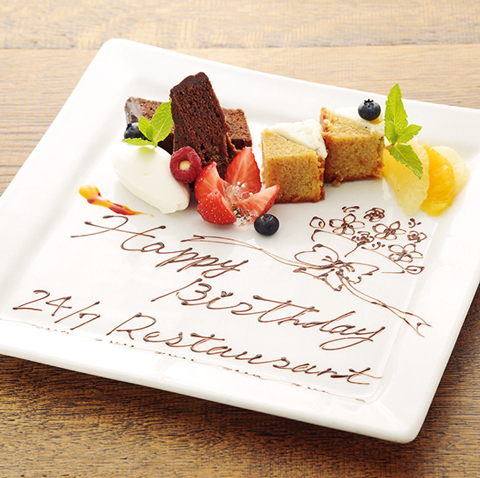 Happy
Birthday
24/7 Restaurant